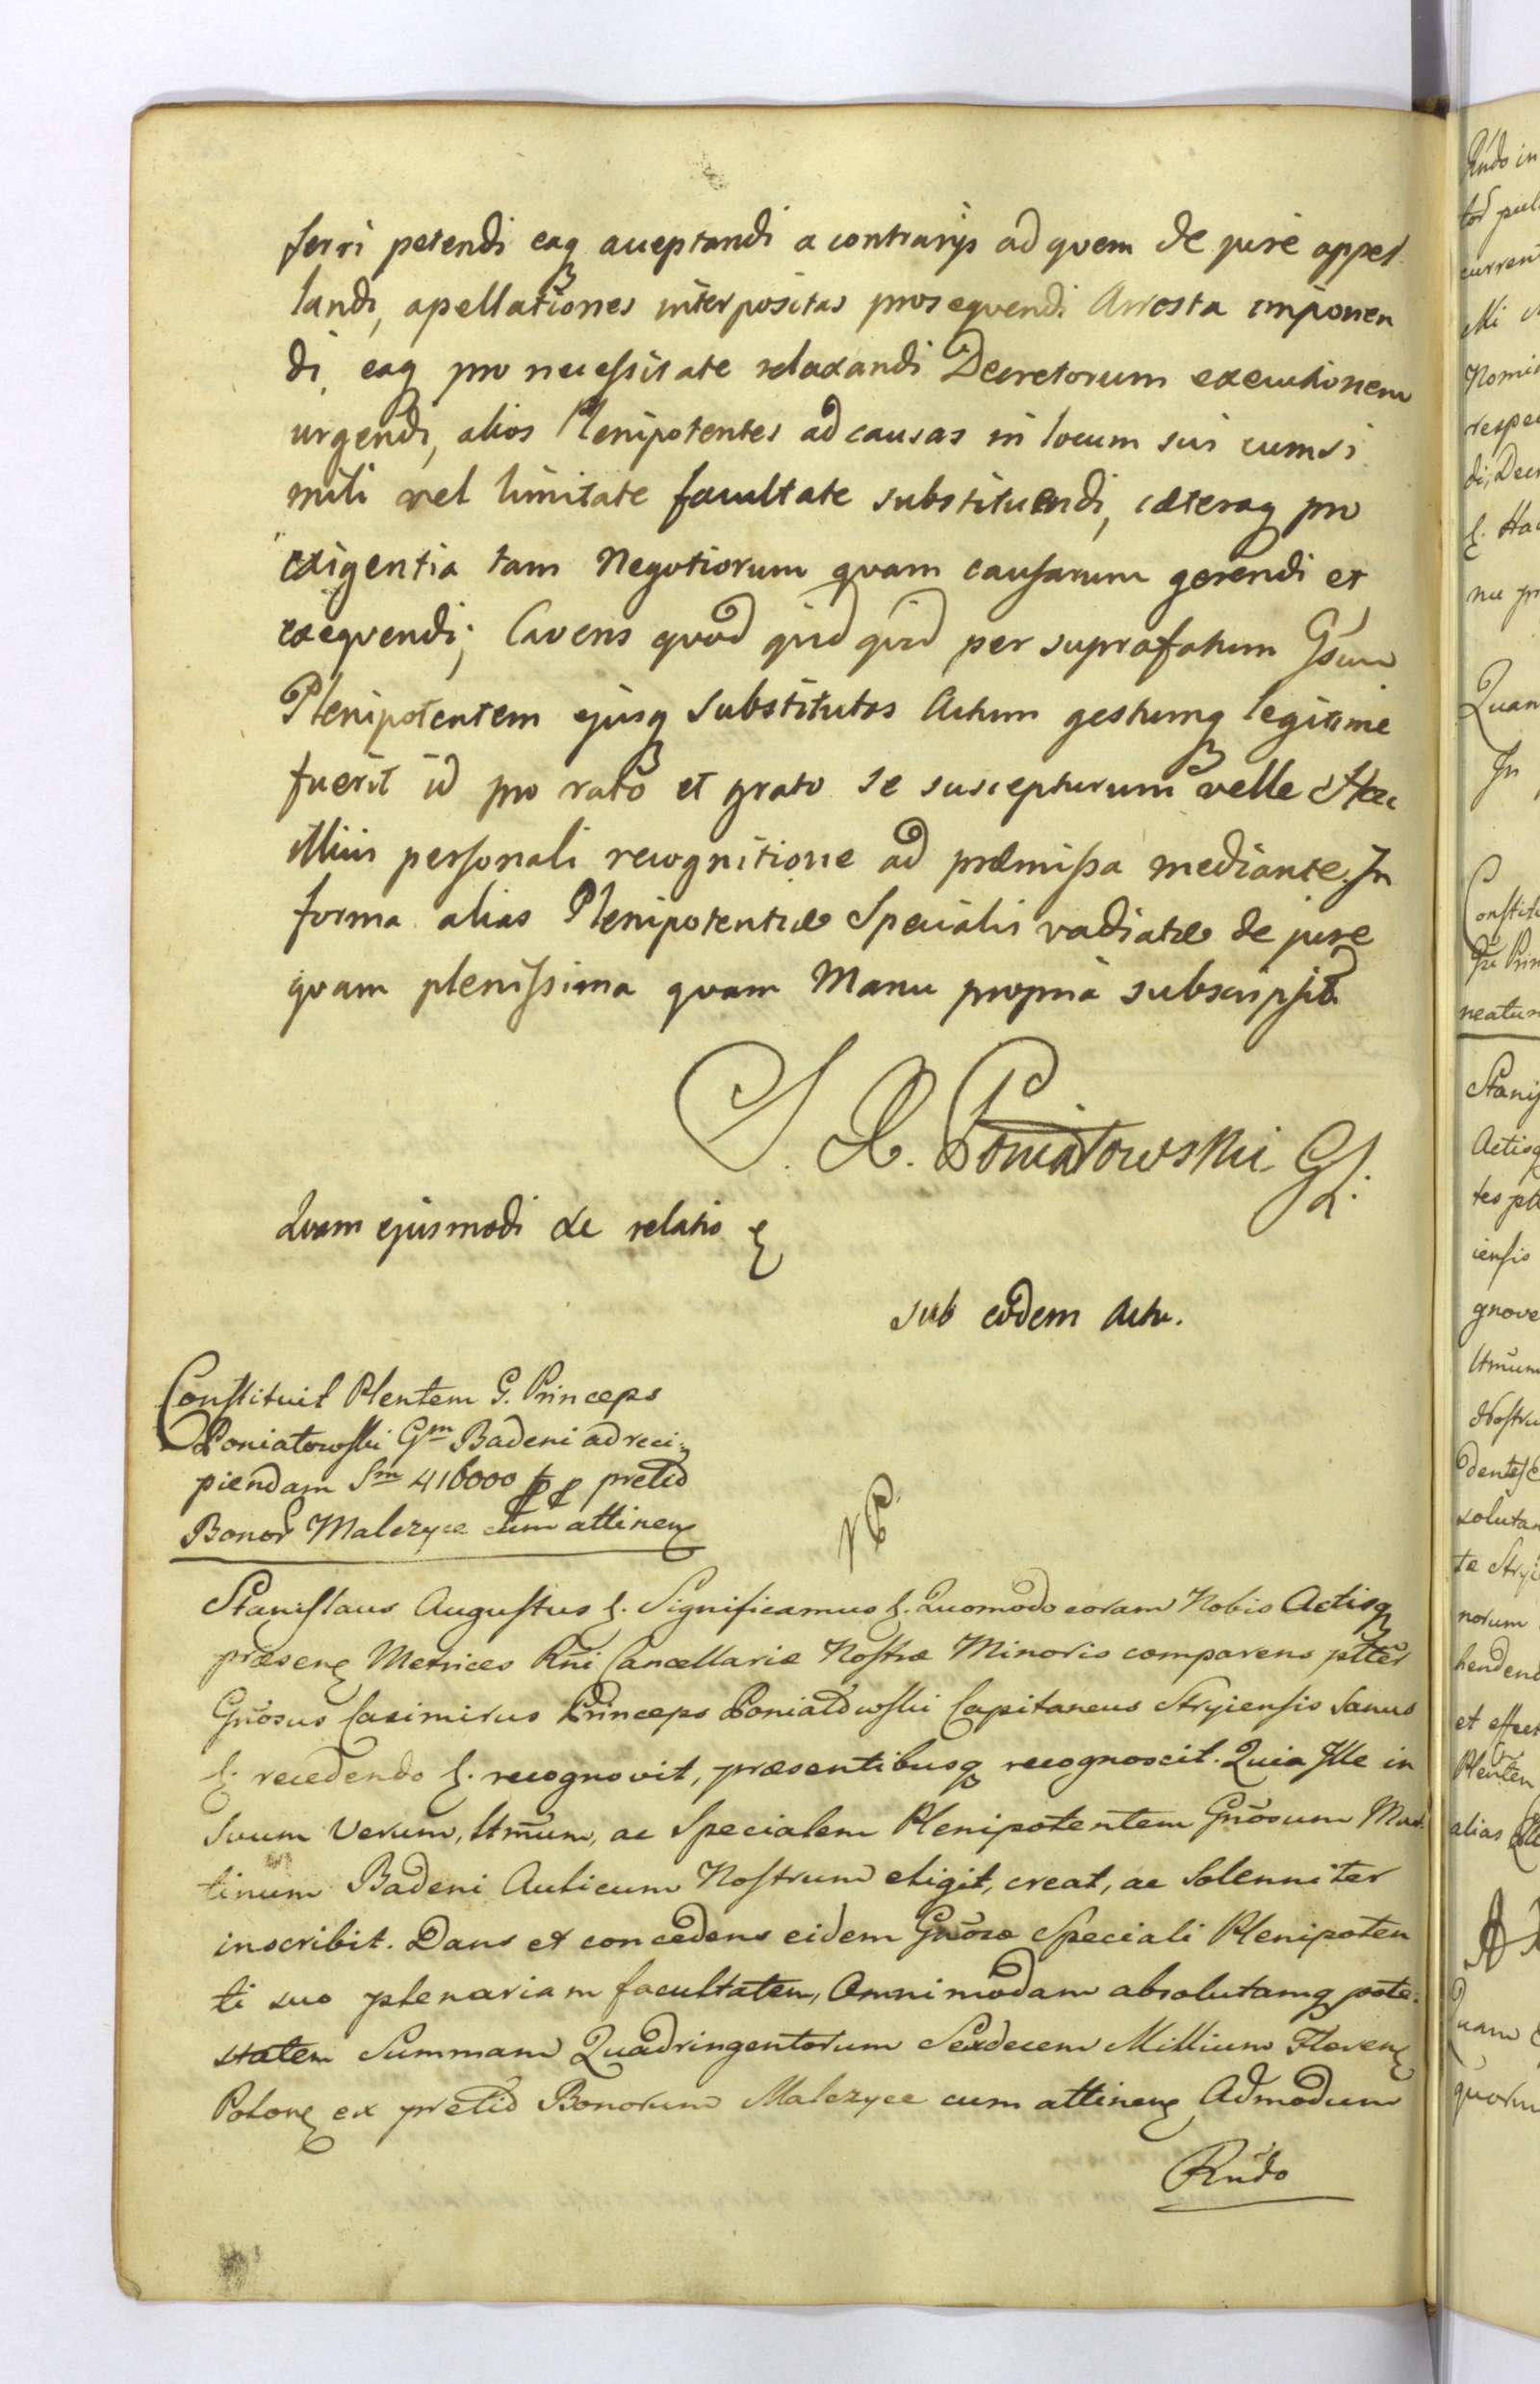 ferri petendi eaq acceptandi a contrarijs ad quem de jure appel
landi, apellationes interpositas prosequendi Arresta imponen
di eaq pro necessitate relaxandi Decretorum executionem
urgendi, alios Plenipotentes ad causas in locum sui cum si
mili vel limitate facultate substituendi, cæteraq pro
exigentia tam Negotiorum quam causarum gerendi et
exequendi; Cavens quod quid quid per suprafatum Gsum
Plenipotentem ejusq substitutos Actum gestumq legitime
fuerit id pro rato et grato se suscepturum velle Hac
illius personali recognitione ad præmissa mediante. In
forma alias Plenipotentiæ Specialis vadiatæ de jure
quam plenissima quam Manu propria subscripsit
S. Poniatowski
Quam ejusmodi &c relatio
sub eodem Actu.
Constituit Plentem G. Princeps
Poniatowski Gm Badeni ad reci
piendam Sm 416000 pretio
Bonor Malczyce cum attinen
Stanislaus Augustus &. Significamus &. Quomodo coram Nobis Actisq
præsen Metrices Rni Cancellariæ Nostræ Minoris comparens ptter
Gnosus Casimirus Princeps Poniatowski Capitaneus Stryiensis Sanus
&. recedendo &. recognovit, præsentibusq recognoscit. Quia Ille in
Suum Verum, Ltmum, ac Specialem Plenipotentem Gnosum Mar
tinum Badeni Aulicum Nostrum eligit, creat, ac Solenniter
inscribit. Dans et concedens eidem Gnoso Speciali Plenipoten
ti suo plenariam facultatem, Omnimodam absolutamq pote
statem Summam Quadringentorum Sexdecem Millium Floren
Polon ex pretio Bonorum Malczyce cum attinen Admodum
Rndo